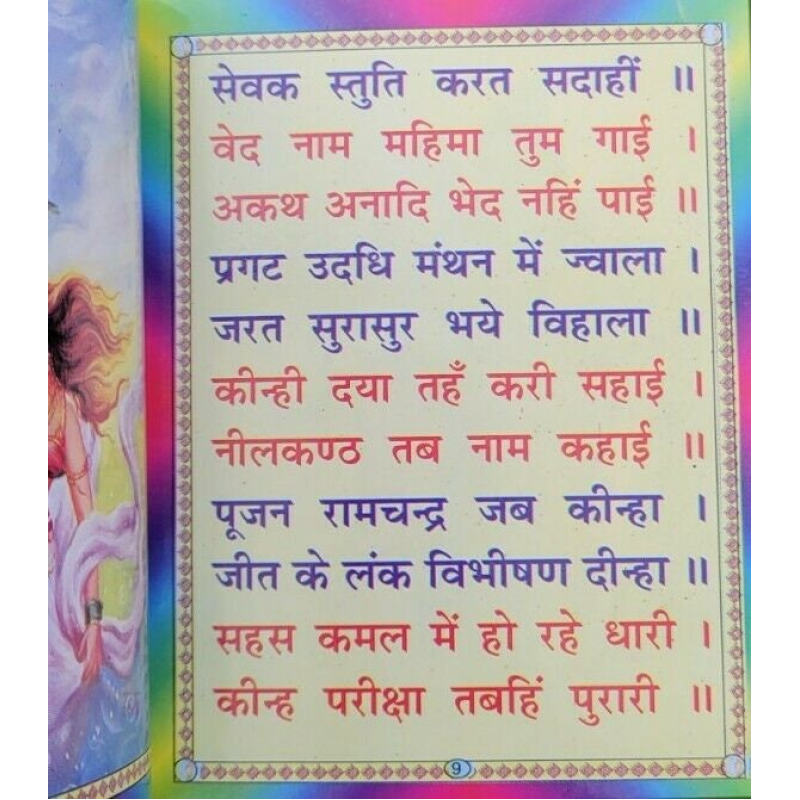 सेवक स्तुति करत सदाहीं ॥
वेद नाम महिमा तुम गाई ।
अकथ अनादि भेद नहिं पाई ॥
प्रगट उदधि मंथन में ज्वाला ।
जरत सुरासुर भये विहाला ॥
कीन्ही दया तहँ करी सहाई ।
नीलकण्ठ तब नाम कहाई ॥
पूजन रामचन्द्र जब कीन्हा ।
जीत के लंक विभीषण दीन्हा ॥
सहस कमल में हो रहे धारी ।
कीन्ह परीक्षा तबहिं पुरारी ॥
9